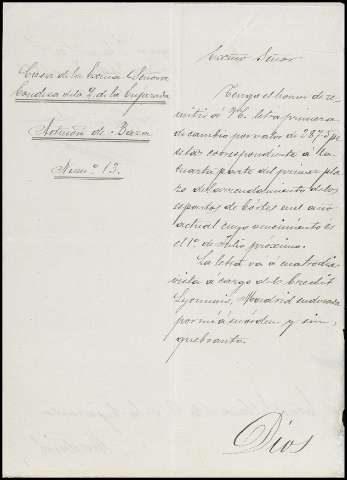 Casa de la Excma Señora
Condesa v. de la P. de la Enjarada
Admón de Baza
Num.º 13.
Excmo Señor
Tengo el honor de re-
mitir á V.E. letra primera
de cambio por valor de 287,5 pe-
setas correspondiente á la
cuarta parte del primer pla-
zo del arrendamiento de los
espartos de Cortes en el año
actual cuyo vencimiento es
el 1º de Julio próximo.
La letra vá á cuatro dias
vista á cargo de le Credit
Lyonnais, Madrid endosada
por mi á su órden y sin
quebranto.
Dios